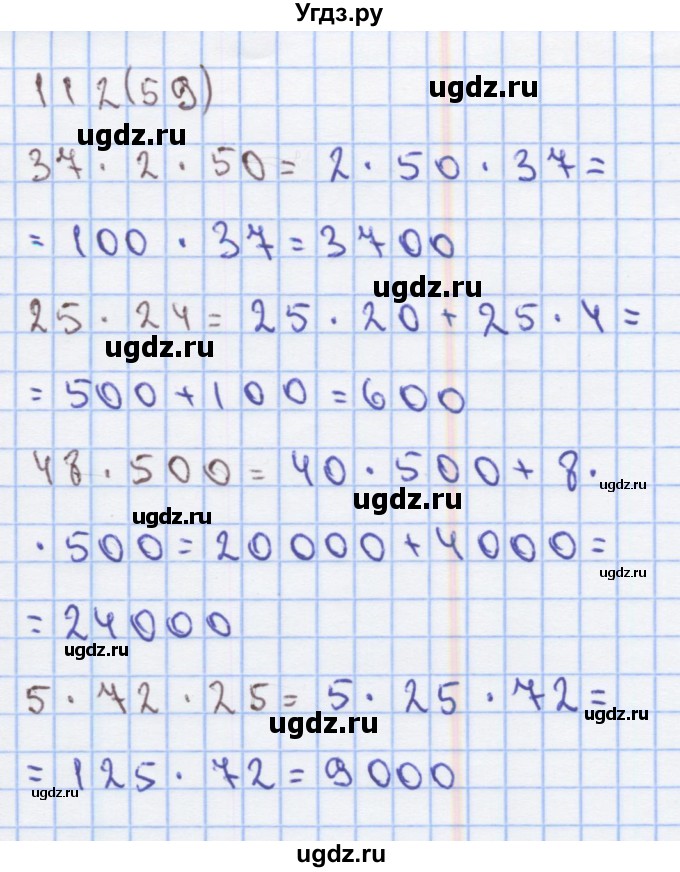 Угдз.ру
112(59)
ugdz.ru
ugdz.ru
37 · 2 · 50 = 2 · 50 · 37 =
= 100 · 37 = 3700
ugdz.ru
25 · 24 = 25 · 20 + 25 · 4 =
ugdz.ru
= 500 + 100 = 600
48 · 500 = 40 · 500 + 8 ·
ugdz.ru
ugdz.ru
ugdz.ru
· 500 = 20000 + 4000 =
ugdz.ru
= 24000
ugdz.ru
5 · 72 · 25 = 5 · 25 · 72 =
ugdz.ru
ugdz.ru
= 125 · 72 = 9000
ugdz.ru
ugdz.ru